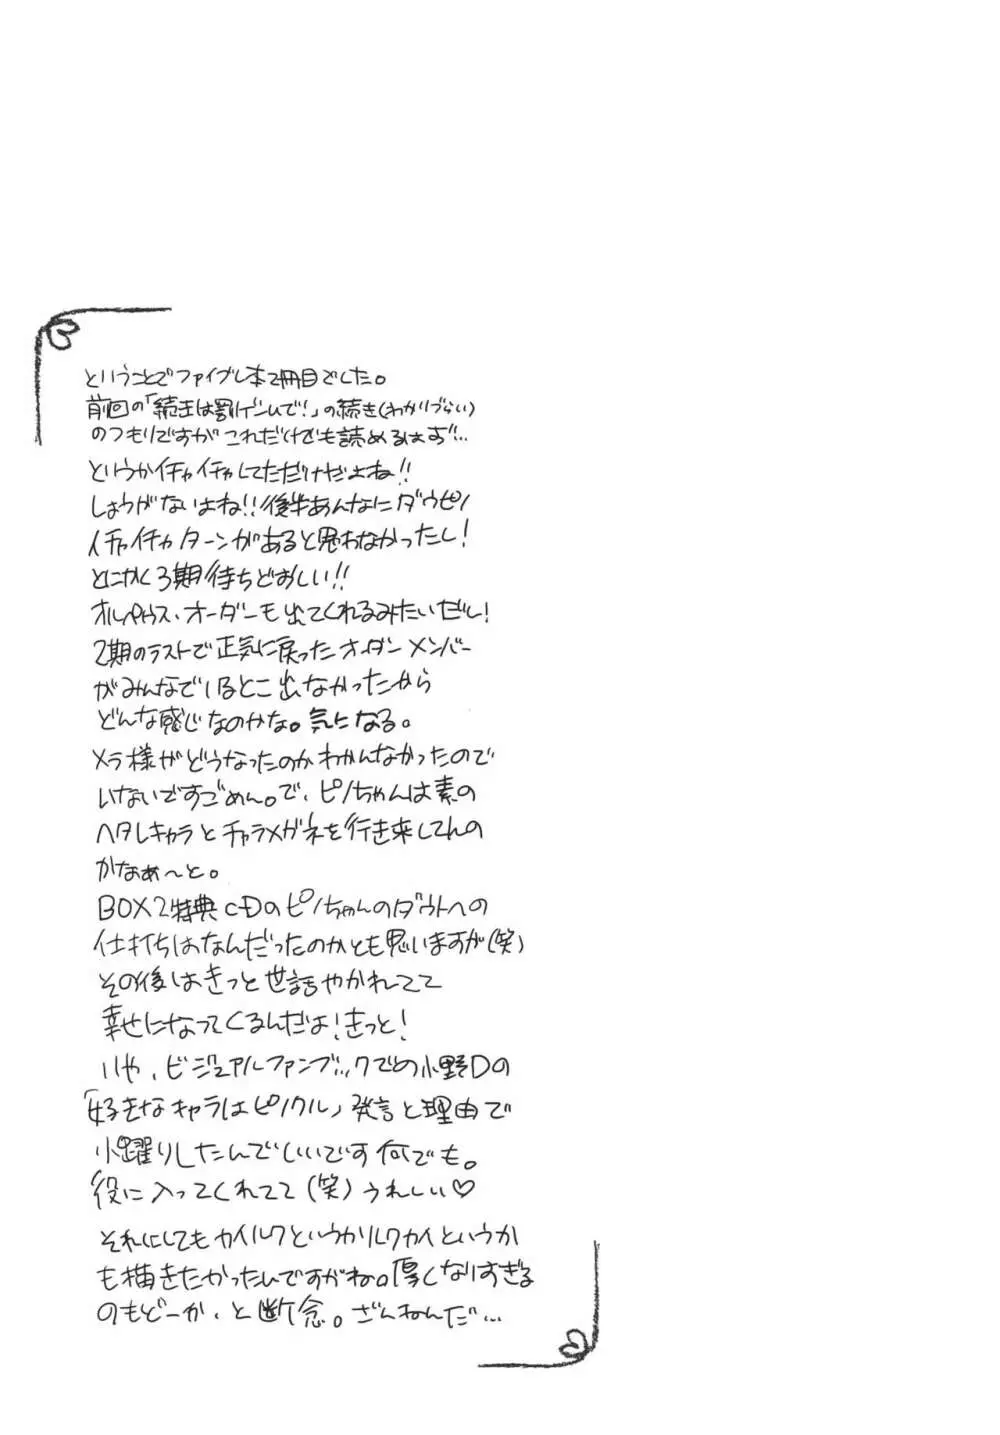 ということでファイブレ本2冊目でした。
前回の「続王は罰ゲームで!」の続き(わかりづらい)
のつもりですが これだけでも読めるはず…
というかイチャイチャしてただけだよね!!
しょうがないよね!!後半あんなにダウピノ
イチャイチャターンがあると思わなかったし!
とにかく3期待ちどおしい!!
オルペウス・オーダーも出てくれるみたいだし!
2期のラストで正気に戻ったオーダーメンバー
がみんなでいるとこ出なかったから
どんな感じなのかな。気になる。
メラ様がどうなったのかわかんなかったので
いないですごめん。で、ピノちゃんは素の
ヘタレキャラとチャラメガネを行き来してんの
かなぁ〜と。
BOX2特典CDのピノちゃんのダウトへの
仕打ちはなんだったのかとも思いますが(笑)
その後はきっと世話やかれてて
幸せになってくるんだよ!きっと!
いや、ビジュアルファンブックでの小野Dの
「好きなキャラはピノクル」発言と理由で
小躍りしたんでいいです何でも。
役に入ってくれてて(笑)うれしい♡
それにしてもカイルクというかルクカイというか
も描きたかったんですがね。厚くなりすぎる
のもどーか、と断念。ざんねんだ…